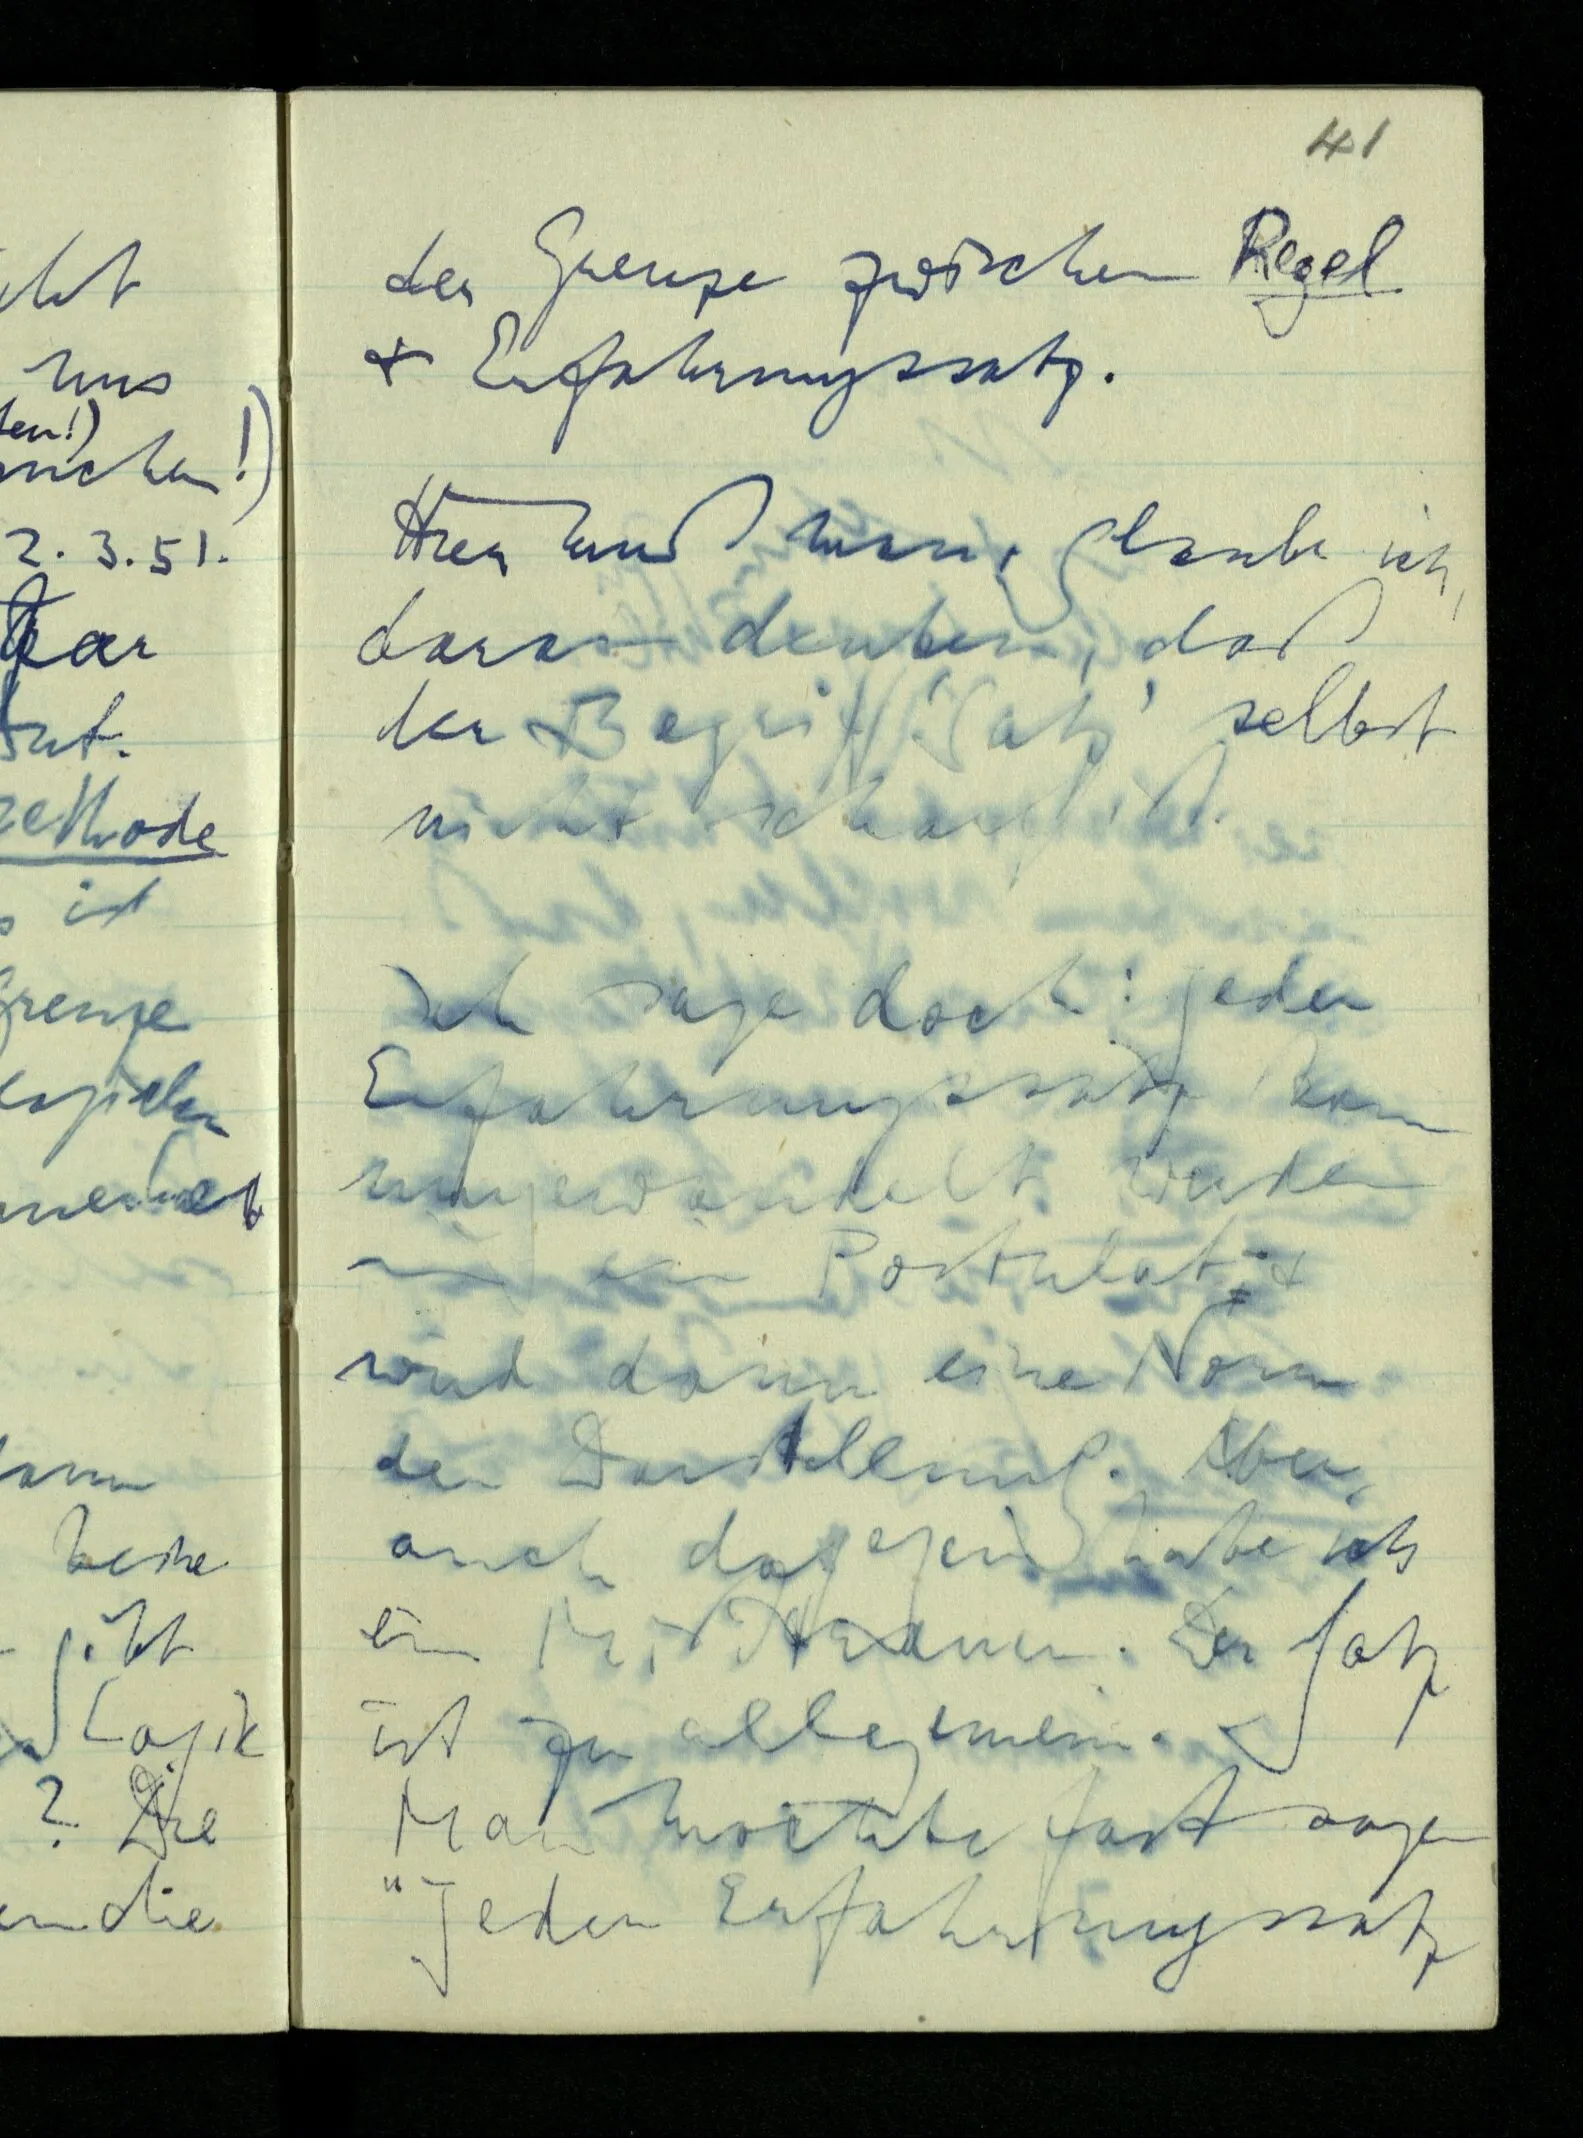 cht
uns
ten!)
machen!)
2. 3. 51.
klar
ist
Grenze
dann
keine
gibt
Logik
? Die
die
41
der Grenze zwischen Regel
& Erfahrungssatz.
Hier muß man, glaube ich,
daran denken, daß
der Begriff ‘Satz’ selbst
nicht scharf ist.
Ich sage doch: jeder
Erfahrungssatz kann
umgewandelt werden
in ein Postulat &
wird dann eine Norm
der Darstellung. Aber
auch dagegen habe ich
ein Mißtrauen. Der Satz
ist zu allgemein.
Man möchte fast sagen
“Jeder Erfahrungssatz